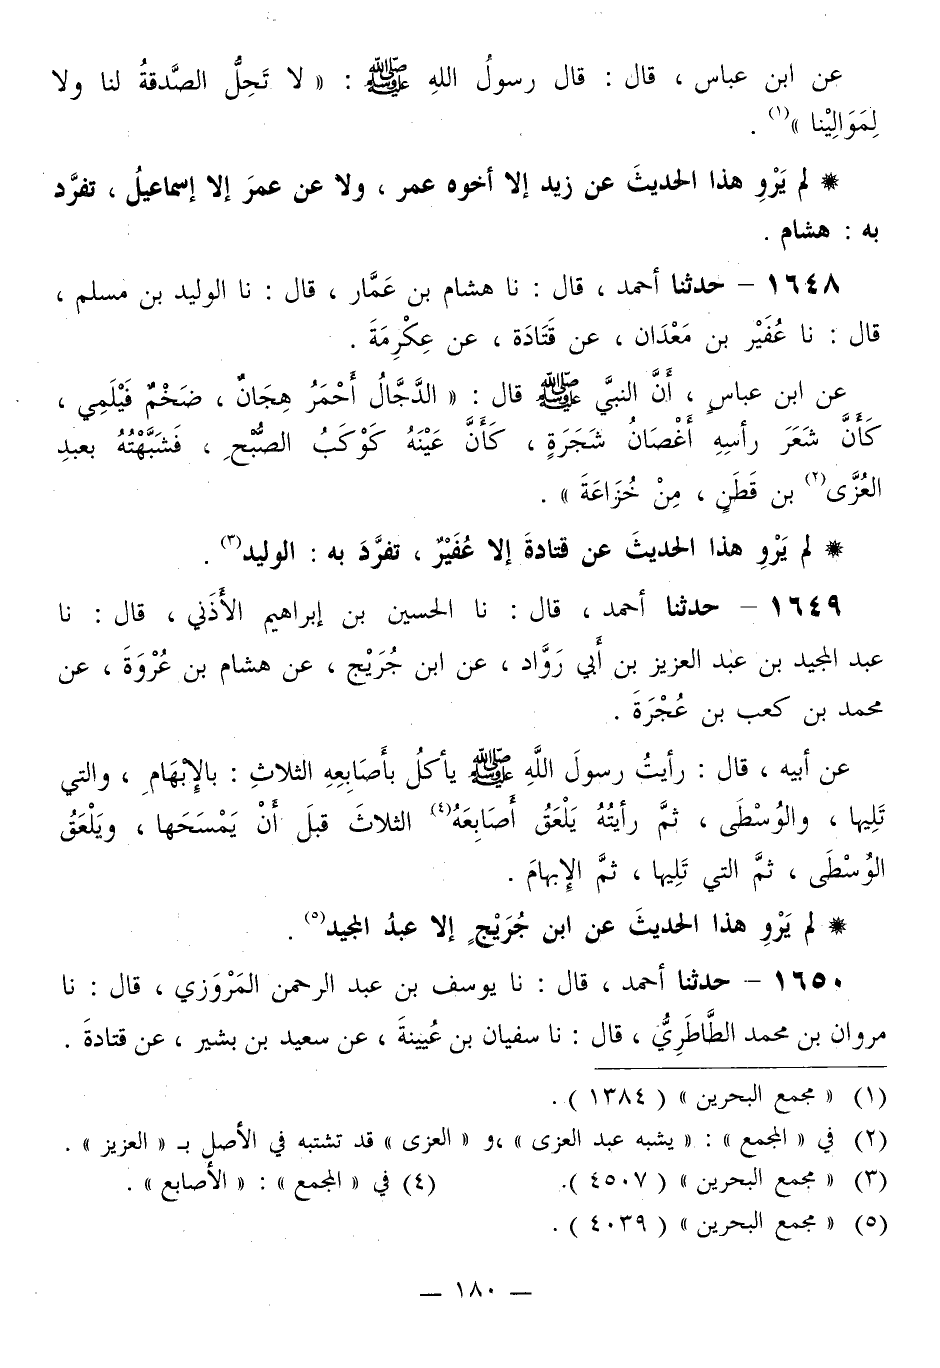 عن ابن عباس ، قال : قال رسولُ اللهِ ﷺ : « لا تَحِلُّ الصَّدقةُ لنا ولا
لِمَوَالِيْنا »(١) .
* لم يَرْوِ هذا الحديثَ عن زيد إلا أخوه عمر ، ولا عن عمرَ إلا إسماعيلُ ، تفرَّد
به : هشام .
١٦٤٨ – حدثنا أحمد ، قال : نا هشام بن عَمَّار ، قال : نا الوليد بن مسلم ،
قال : نا عُفَيْر بن مَعْدَان ، عن قَتَادَة ، عن عِكْرِمَةَ .
عن ابن عباسٍ ، أَنَّ النبيَّ ﷺ قال : « الدَّجَّالُ أَحْمَرُ هِجَانٌ ، ضَخْمٌ فَيْلَمِي ،
كَأَنَّ شَعَرَ رأسِهِ أَغْصَانُ شَجَرَةٍ ، كَأَنَّ عَيْنَهُ كَوْكَبُ الصُّبْحِ ، فَشَبَّهْتُهُ بعبدِ
العُزَّى(٢) بن قَطَنٍ ، مِنْ خُزَاعَةَ » .
* لم يَرْوِ هذا الحديثَ عن قتادةَ إلا عُفَيْرٌ ، تفرَّدَ به : الوليد(٣) .
١٦٤٩ – حدثنا أحمد ، قال : نا الحسين بن إبراهيم الأَذَني ، قال : نا
عبد المجيد بن عبد العزيز بن أَبي رَوَّاد ، عن ابن جُرَيْج ، عن هشام بن عُرْوَةَ ، عن
محمد بن كعب بن عُجْرَةَ .
عن أبيه ، قال : رأيتُ رسولَ اللَّهِ ﷺ يأكلُ بأَصَابِعِهِ الثلاثِ : بالإِبْهَامِ ، والتي
تَلِيها ، والوُسْطَى ، ثمَّ رأيتُهُ يَلْعَقُ أَصَابِعَهُ(٤) الثلاثَ قبلَ أَنْ يَمْسَحَها ، ويَلْعَقُ
الوُسْطَى ، ثمَّ التي تَلِيها ، ثمَّ الإِبهامَ .
* لم يَرْوِ هذا الحديثَ عن ابن جُرَيْجٍ إلا عبدُ المجيد(٥) .
١٦٥٠ – حدثنا أحمد ، قال : نا يوسف بن عبد الرحمن المَرْوَزي ، قال : نا
مروان بن محمد الطَّاطَرِيُّ ، قال : نا سفيان بن عُيينةَ ، عن سعيد بن بشير ، عن قتادةَ .
(١) « مجمع البحرين » ( ١٣٨٤ ) .
(٢) في « المجمع » : « يشبه عبد العزى » ،و « العزى » قد تشتبه في الأصل بـ « العزيز » .
(٣) « مجمع البحرين » ( ٤٥٠٧ ). (٤) في « المجمع » : « الأصابع » .
(٥) « مجمع البحرين » ( ٤٠٣٩ ) .
— ١٨٠ —